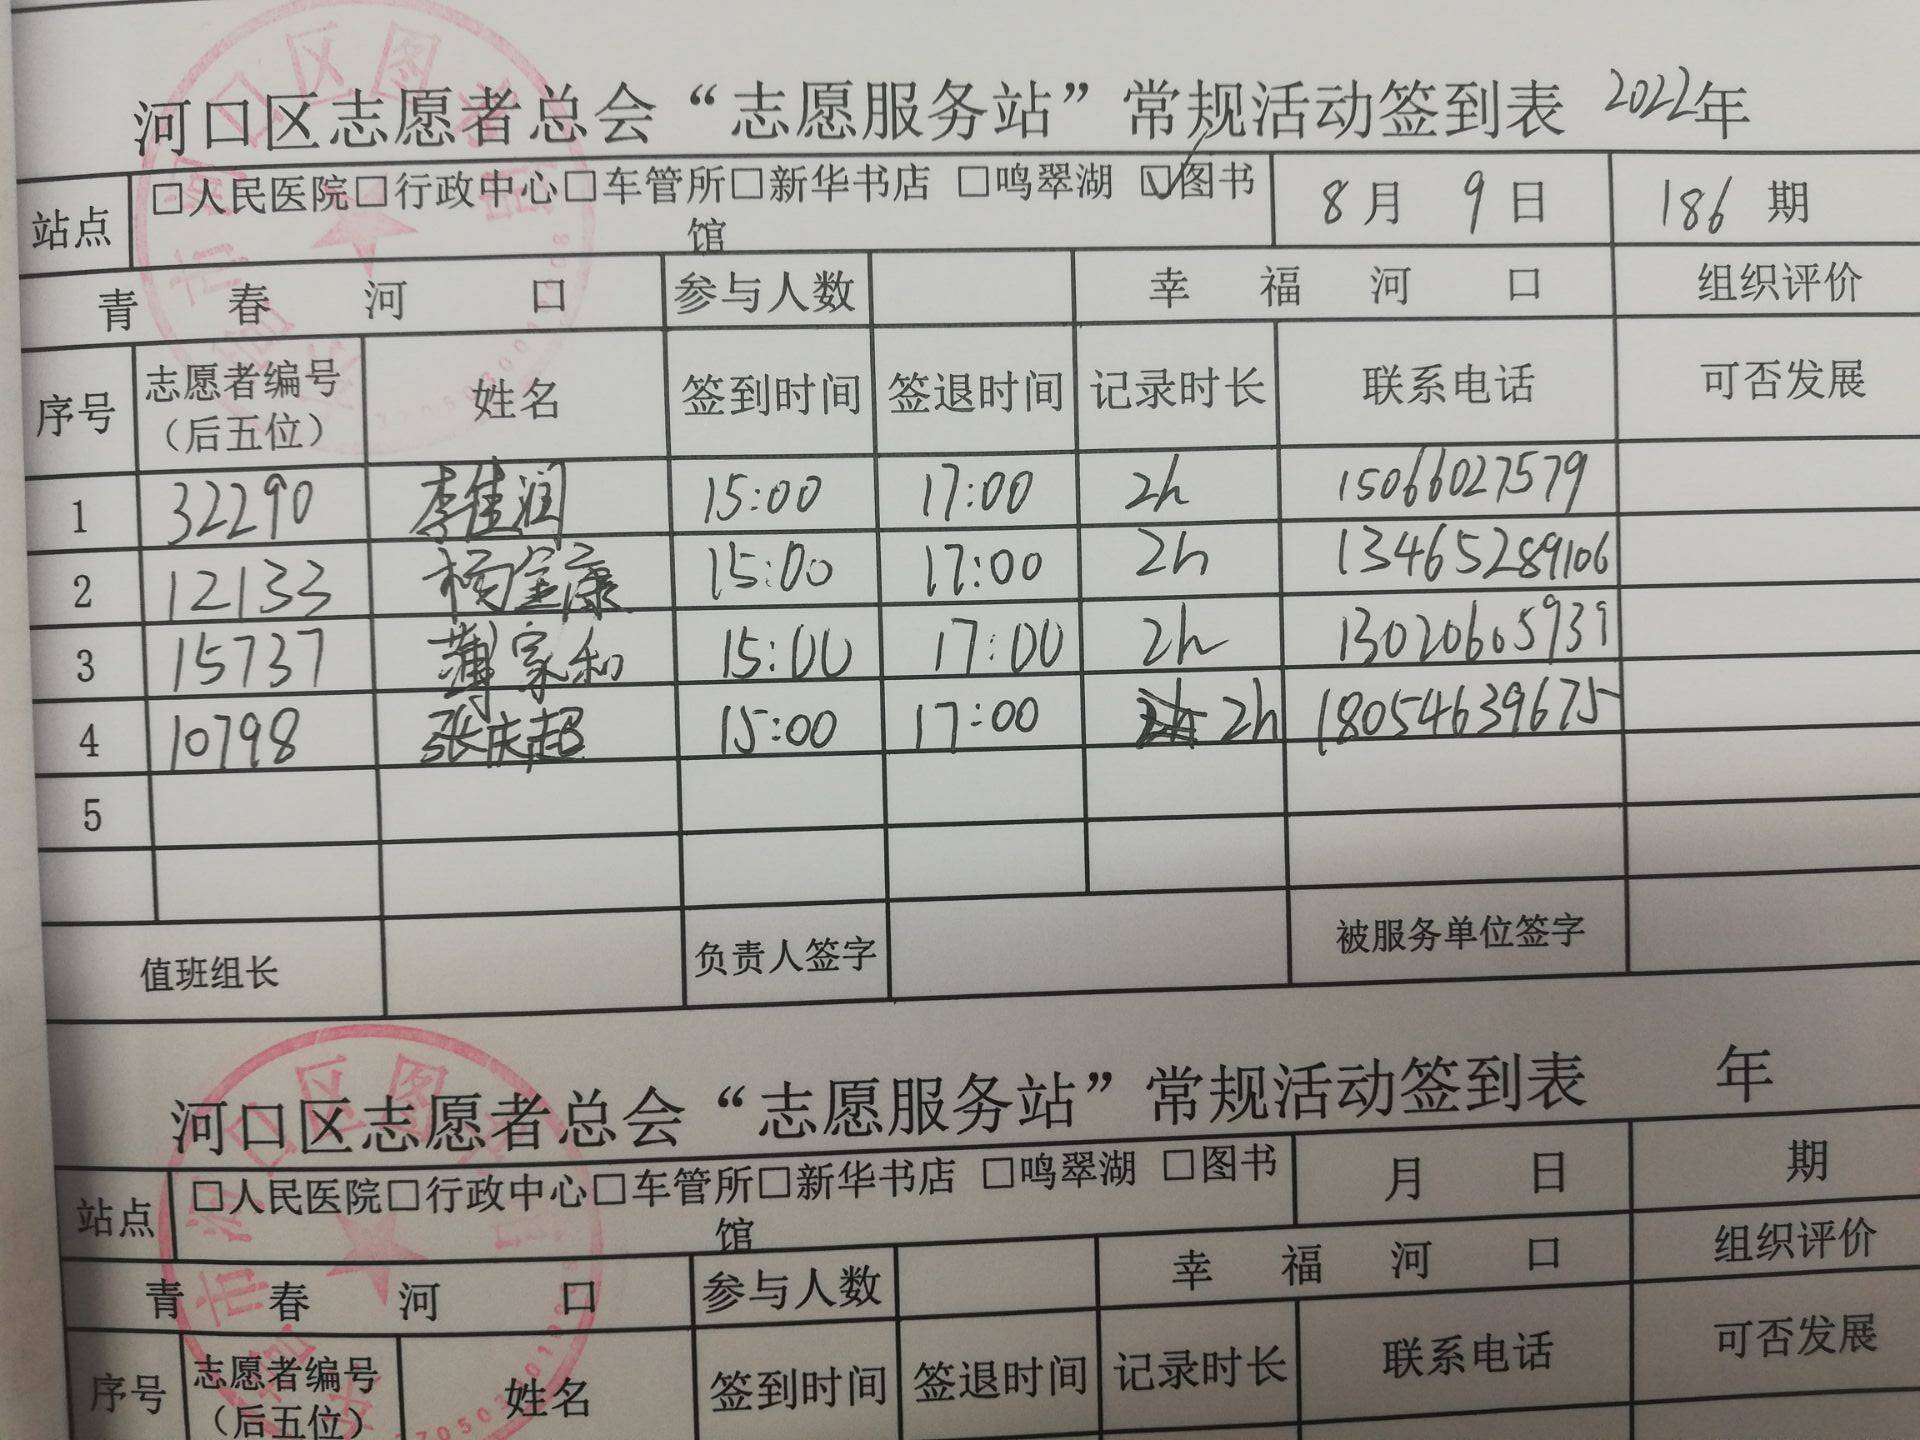 河口区志愿者总会“志愿服务站”常规活动签到表 2022年
站点 □人民医院□行政中心□车管所□新华书店 □鸣翠湖 ☑图书馆 8月 9日 186 期
青春河口 参与人数 幸福河口 组织评价
序号 志愿者编号（后五位） 姓名 签到时间 签退时间 记录时长 联系电话 可否发展
1 32290 李佳润 15:00 17:00 2h 15066027579
2 12133 杨宝康 15:00 17:00 2h 13465289106
3 15737 薄家和 15:00 17:00 2h 13020605939
4 10798 张庆超 15:00 17:00 2h 18054639675
5
值班组长 负责人签字 被服务单位签字
河口区志愿者总会“志愿服务站”常规活动签到表 年
站点 □人民医院□行政中心□车管所□新华书店 □鸣翠湖 □图书馆 月 日 期
青春河口 参与人数 幸福河口 组织评价
序号 志愿者编号（后五位） 姓名 签到时间 签退时间 记录时长 联系电话 可否发展